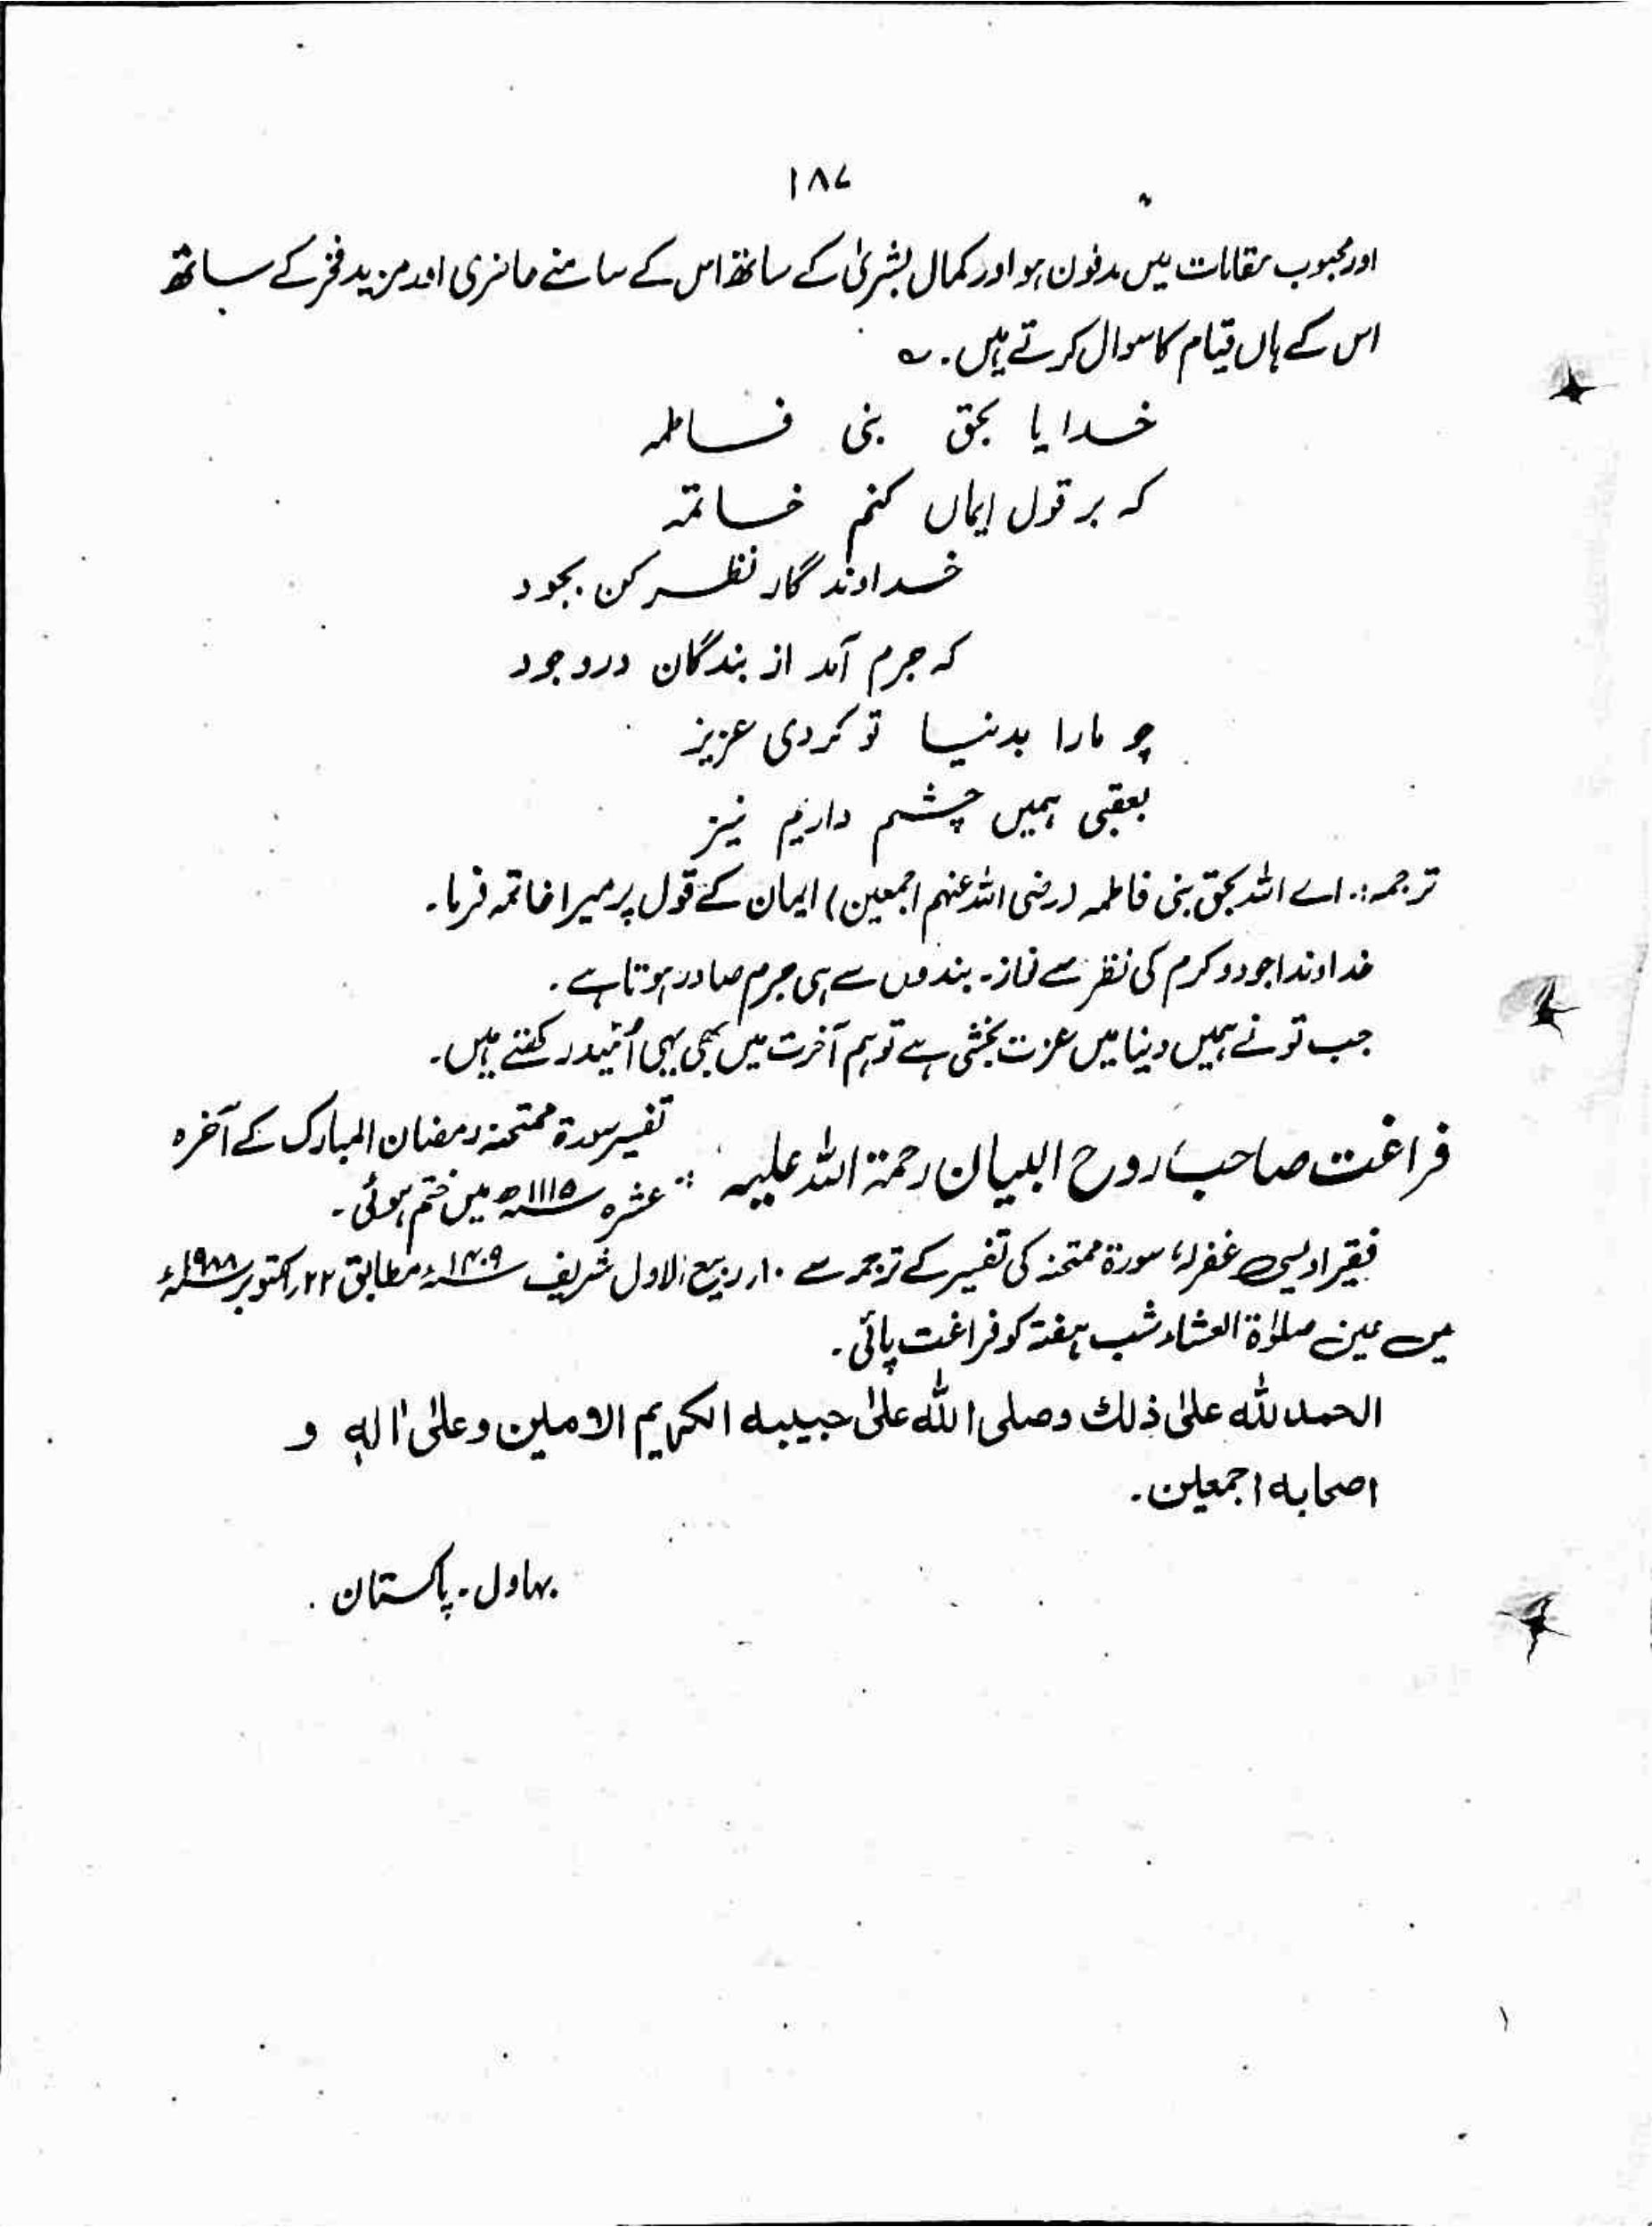 ۱۸۷
اور محبوب مقامات میں مدفون ہو اور کمال بشریٰ کے ساتھ اس کے سامنے حاضری اور مزید فخر کے ساتھ
اس کے ہاں قیام کا سوال کرتے ہیں۔ ؎
خدایا بحق بنی فاطمہ
کہ بر قول ایماں کنم خاتمہ
خداوندگار نظر کن بجود
کہ جرم آمد از بندگان در وجود
چو مارا بدنیا تو کردی عزیز
بعقبی ہمیں چشم داریم نیز
ترجمہ:۔ اے اللہ بحق بنی فاطمہ (رضی اللہ عنہم اجمعین) ایمان کے قول پر میرا خاتمہ فرما۔
خداوندا جود و کرم کی نظر سے نماز۔ بندوں سے ہی جرم صادر ہوتا ہے۔
جب تو نے ہمیں دینا میں عزت بخشی ہے تو ہم آخرت میں بھی یہی اُمید رکھتے ہیں۔
فراغت صاحب روح البیان رحمۃ اللہ علیہ : تفسیر سورۃ ممتحنہ رمضان المبارک کے آخرہ
عشرہ ۱۱۱۵ھ میں ختم ہوئی۔
فقیر اویسی غفرلہٗ سورۃ ممتحنہ کی تفسیر کے ترجمہ سے ۱۰ ربیع الاول شریف ۱۴۰۹ھ مطابق ۲۲ اکتوبر ۱۹۸۸ء
میں عین صلوٰۃ العشاء شب ہفتہ کو فراغت پائی۔
الحمد للہ علیٰ ذلک وصلی اللہ علیٰ حبیبہ الکریم الامین وعلیٰ اٰلہٖ و
اصحابہ اجمعین۔
بہاول۔ پاکستان۔